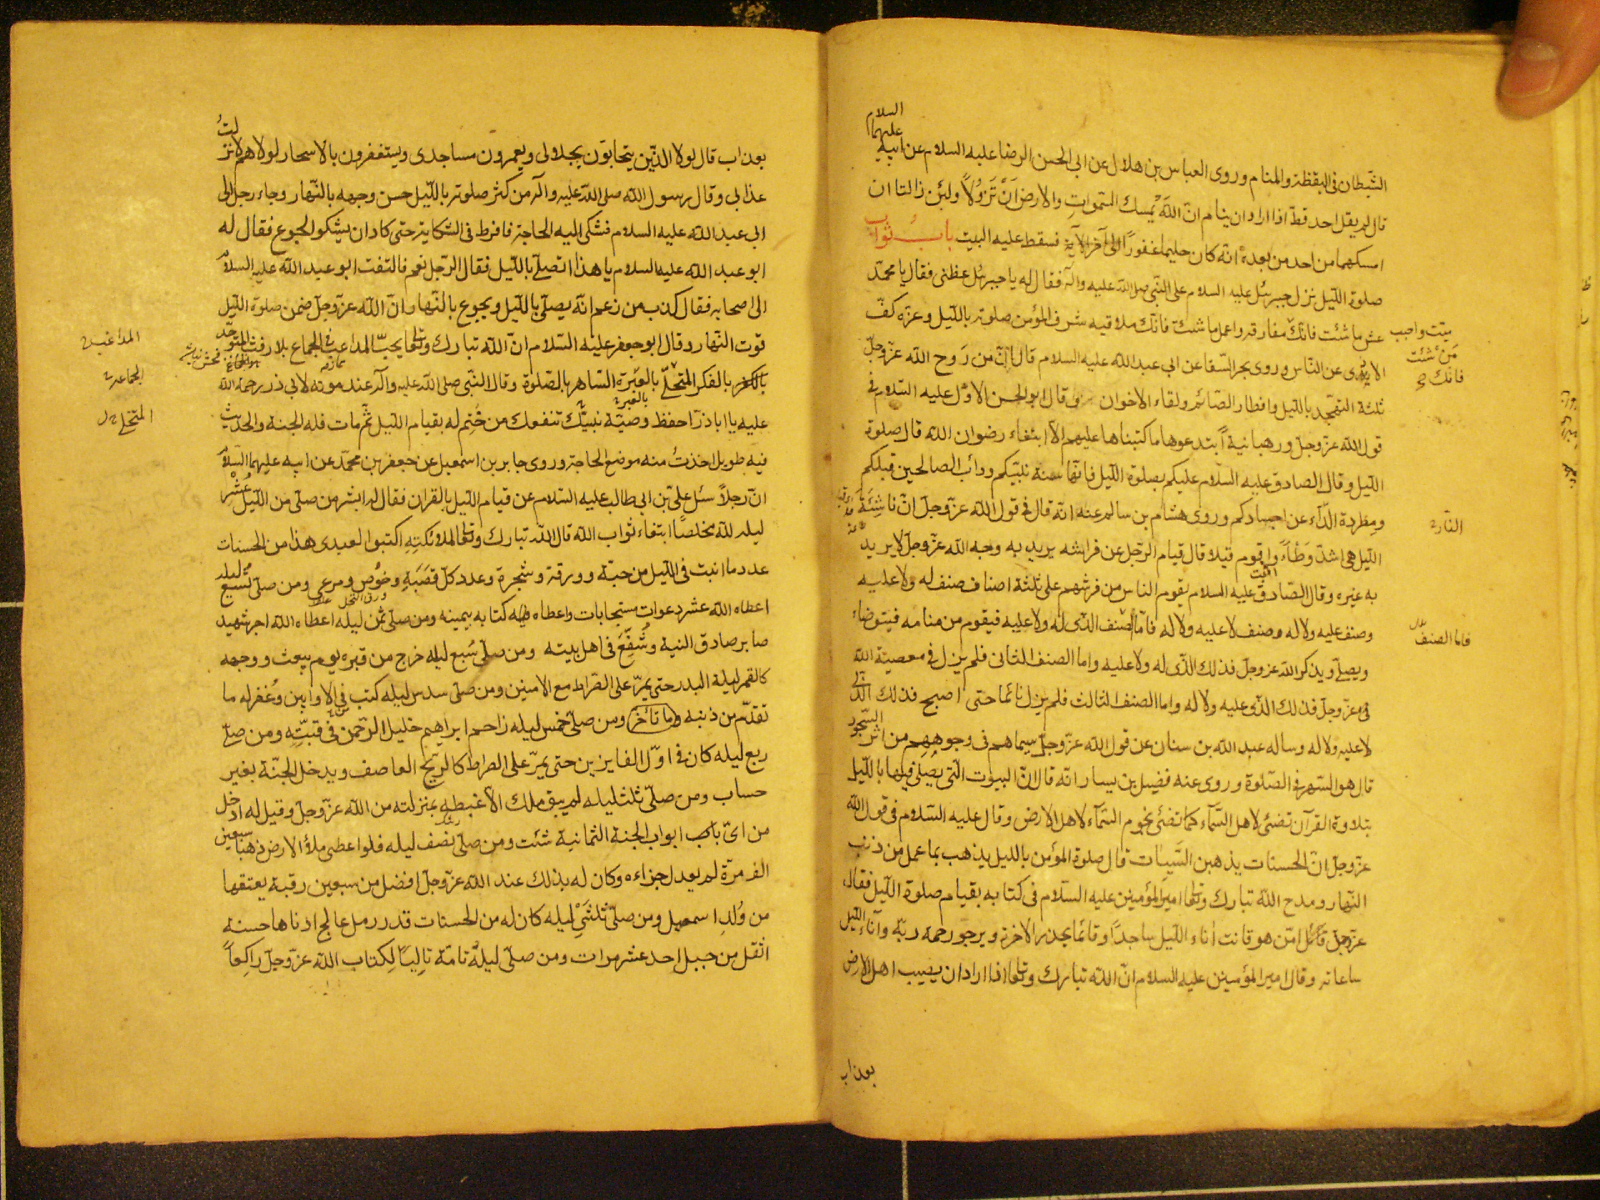 السلام
عليهما
الشيطان فى اليقظة والمنام وروى العباس بن هلال عن ابى الحسن الرضا عليه السلام عن ابيه
قال لم يقل احد قط اذا اراد ان ينام ان الله يمسك السموات والارض ان تزولا ولئن زالتا ان
امسكهما من احد من بعده انه كان حليما غفورا الى آخر الآية فسقط عليه البيت باب ثواب
صلوة الليل نزل جبرئيل عليه السلام على النبى صلى الله عليه وآله فقال له يا جبرئيل عظنى فقال يا محمد
عش ما شئت فانك ميت واحبب من شئت فانك مفارقه واعمل ما شئت فانك ملاقيه شرف المؤمن صلوته بالليل وعزه كف
الاذى عن الناس وروى بحر السقا عن ابى عبد الله عليه السلام قال ان من روح الله عز وجل
ثلثة التهجد بالليل وافطار الصائم ولقاء الاخوان وقال ابو الحسن الاول عليه السلام فى
قول الله عز وجل ورهبانية ابتدعوها ما كتبناها عليهم الا ابتغاء رضوان الله قال صلوة
الليل وقال الصادق عليه السلام عليكم بصلوة الليل فانها سنة نبيكم ودأب الصالحين قبلكم
ومطردة الداء عن اجسادكم وروى هشام بن سالم عنه انه قال فى قول الله عز وجل ان ناشئة
الليل هى اشد وطأ واقوم قيلا قال قيام الرجل عن فراشه يريد به وجه الله عز وجل لا يريد
به غيره وقال الصادق عليه السلام يقوم الناس من فرشهم على ثلثة اصناف صنف له ولا عليه
وصنف عليه ولا له وصنف لا عليه ولا له فاما الصنف الذى له ولا عليه فيقوم من منامه فيتوضاء
ويصلى ويذكر الله عز وجل فذلك الذى له ولا عليه واما الصنف الثانى فلم يزل فى معصية الله
عز وجل فذلك الذى عليه ولا له واما الصنف الثالث فلم يزل نائما حتى اصبح فذلك الذى
لا عليه ولا له وساله عبد الله بن سنان عن قول الله عز وجل سيماهم فى وجوههم من اثر السجود
قال هو السهر فى الصلوة وروى عنه فضيل بن يسار انه قال ان البيوت التى يصلى فيها بالليل
بتلاوة القرآن تضئ لاهل السماء كما تضئ نجوم السماء لاهل الارض وقال عليه السلام فى قول الله
عز وجل ان الحسنات يذهبن السيئات قال صلوة المؤمن بالليل يذهب بما عمل من ذنب
النهار ومدح الله تبارك وتعالى امير المؤمنين عليه السلام فى كتابه بقيام صلوة الليل فقال
عز وجل امن هو قانت اناء الليل ساجدا وقائما يحذر الآخرة ويرجو رحمة ربه وآناء الليل
ساعاته وقال امير المؤمنين عليه السلام ان الله تبارك وتعالى اذا اراد ان يصيب اهل الارض
بعذاب
ميت واحبب
من شئت
فانك
فاما الصنف
بعذاب قال لولا الذين يتحابون بجلالى ويعمرون مساجدى ويستغفرون بالاسحار لولاهم لانزلت
عذابى وقال رسول الله صلى الله عليه وآله من كثر صلوته بالليل حسن وجهه بالنهار وجاء رجل الى
ابى عبد الله عليه السلام فشكى اليه الحاجة فافرط فى الشكاية حتى كاد ان يشكو الجوع فقال له
ابو عبد الله عليه السلام يا هذا اتصلى بالليل فقال الرجل نعم فالتفت ابو عبد الله عليه السلام
الى اصحابه فقال كذب من زعم انه يصلى بالليل ويجوع بالنهار وان الله عز وجل ضمن صلوة الليل
قوت النهار وقال ابو جعفر عليه السلام ان الله تبارك وتعالى يحب المداعب فى الجماع بلا رفث المتوحد
بالفكر المتخلى بالعبرة الساهر بالصلوة وقال النبى صلى الله عليه وآله عند موته لابى ذر رحمة الله
عليه يا اباذر احفظ وصية نبيك تنفعك من ختم له بقيام الليل ثم مات فله الجنة والحديث
فيه طويل اخذت منه موضع الحاجة وروى جابر بن اسمعيل عن جعفر بن محمد عن ابيه عليهما السلام
ان رجلا سئل على بن ابى طالب عليه السلام عن قيام الليل بالقران فقال له ابشر من صلى من الليل عشر
ليله لله مخلصا ابتغاء ثواب الله قال الله تبارك وتعالى لملائكته اكتبوا لعبدى هذا من الحسنات
عدد ما انبت فى الليل من حبة وورقة وشجرة وعدد كل قصبة وخوص ومرعى ومن صلى تسع ليله
اعطاه الله عشر دعوات مستجابات واعطاه كتابه بيمينه ومن صلى ثمن ليله اعطاه الله اجر شهيد
صابر صادق النية وشفع فى اهل بيته ومن صلى سبع ليله خرج من قبره يوم يبعث ووجهه
كالقمر ليلة البدر حتى يمر على الصراط مع الامنين ومن صلى سدس ليله كتب فى الاوابين وغفر له ما
تقدم من ذنبه وما تاخر ومن صلى خمس ليله زاحم ابراهيم خليل الرحمن فى قبته ومن صلى
ربع ليله كان فى اول الفايزين حتى يمر على الصراط كالريح العاصف ويدخل الجنة بغير
حساب ومن صلى ثلث ليله لم يبق ملك الا غبطه بمنزلته من الله عز وجل وقيل له ادخل
من اى باب ابواب الجنة الثمانية شئت ومن صلى نصف ليله فلو اعطى ملأ الارض ذهبا سبعين
الف مرة لم يعدل جزاءه وكان له بذلك عند الله عز وجل افضل من سبعين رقبة يعتقها
من ولد اسمعيل ومن صلى ثلثى ليله كان له من الحسنات قدر رمل عالج ادناها حسنة
اثقل من جبل احد عشر مرات ومن صلى ليلة تامة تاليا لكتاب الله عز وجل راكعا